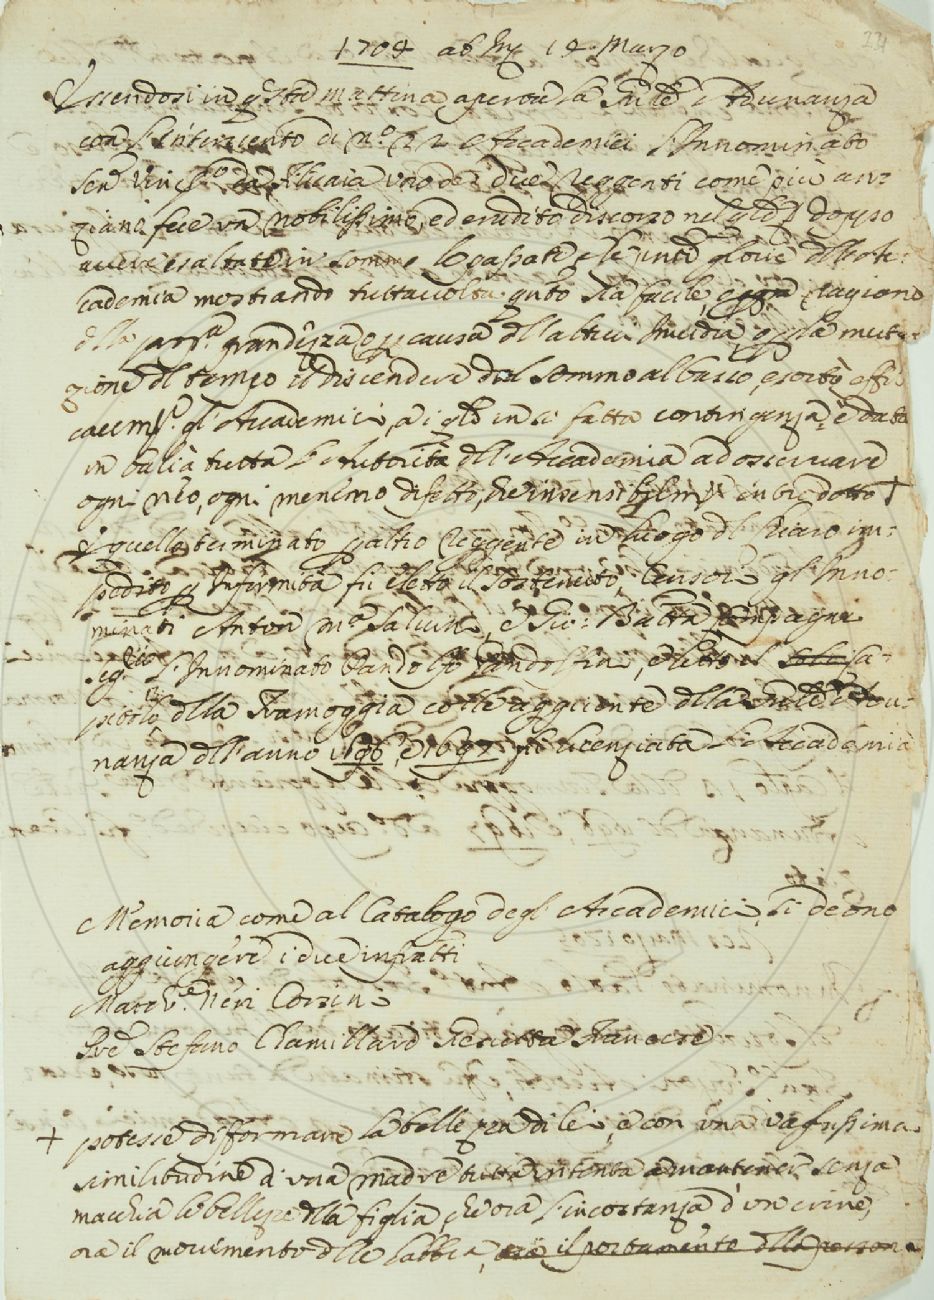 231
1704 ab Inc 14 Marzo
Essendosi in q.sta mattina aperta la Adunanza
con l'Intervento di N.o 22 Accademici l'Innominato
Sen.r Vinc.o da Filicaia uno de due Reggenti come più an=
ziano fece un nobilissimo, ed erudito discorso nel q.le doppo
avere esaltate in sommo le passate e le glorie dell'Ac=
cademia mostrando tuttavolta q.nto sia facile, ò cagione
della grandezza, ò p causa dell'altrui Invidia, ò p la muta=
zione del tempo il discendere dal sommo al basso, esortò effi=
cacem.te gl'Accademici, a i q.li in si fatta contingenza è data
in balia tutta l'Autorità dell'Accademia ad osservare
ogni neo, ogni menomo difetto, che insensibilm.te introdotto +
E quello terminato p altro Reggente in luogo del im=
pedito p Infermità fù eletto il Sostenuto, Censori gl'Inno=
minati Anton M.a Salvini, e Gio: Batta Fagiuoli
Seg.rio l'Innominato Bandolfo Pandolfini, e letto il Sa=
pitolo della Tramoggia colle aggiunte della Adu=
nanza dell'anno 1696, e 1697 fù licenziata l'Accademia
Memoria come al Catalogo degl'Accademici si deono
aggiungere i due infratti
March.e Neri Corsini
Pre Stefano Chamillard Gesuita Franzese
+ potesse difformare la bellezza di lei, e con una
similitudine d'una madre tutta intenta a mantener senza
macchia le bellezze della figlia, che ora l'incostanza d'un crine,
ora il movimento delle labbra, ora il portamento della persona